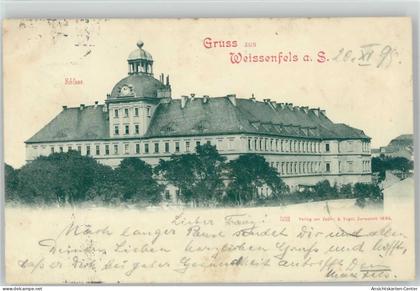 Gruss aus
Weissenfels a. S.
20. XI 98
Schloss
Verlag von Zedler & Vogel, Darmstadt 1898.
Lieber Franz!
Nach langer Pause sendet Dir und allen
Deinen Lieben herzlichen Gruß und hofft,
daß er Dich bei guter Gesundheit antrifft Dein
© Ansichtskarten-Center